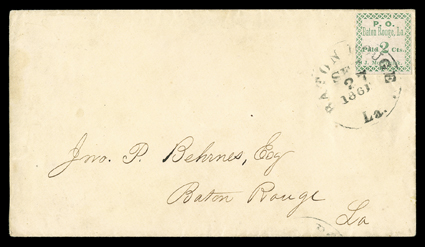 P. O.
Baton Rouge, La.
PAID 2 Cts.
J. M
BATON ROUGE
SEP
27
1861
La.
Jno. P. Behrnes, Esq
Baton Rouge
La